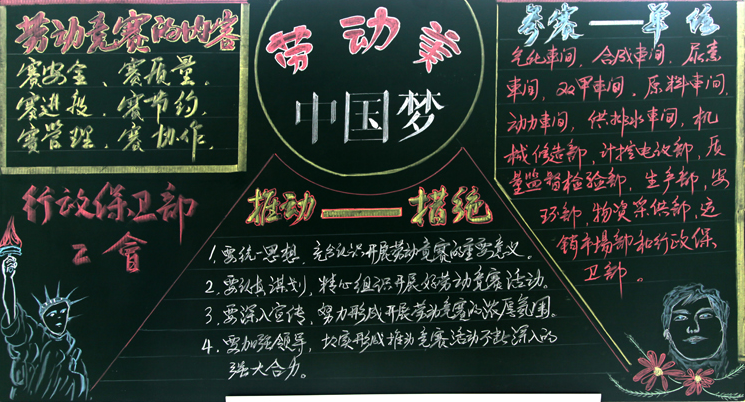 劳动竞赛的内容
赛安全、赛质量、
赛进投、赛节约、
赛管理、赛协作。
行政保卫部
工會
劳动美
中国梦
推动——措施
1、要统一思想，充分认识开展劳动竞赛的重要意义。
2、要认真谋划，精心组织开展好劳动竞赛活动。
3、要深入宣传，努力形成开展劳动竞赛的浓厚氛围。
4、要加强领导，切实形成推动竞赛活动不断深入的
强大合力。
参赛——单位
气化车间，合成车间，尿素
车间，双甲车间，原料车间，
动力车间，供排水车间，机
械修造部，计控电仪部，质
量监督检验部，生产部，安
环部，物资采供部，运
销市场部和行政保
卫部。